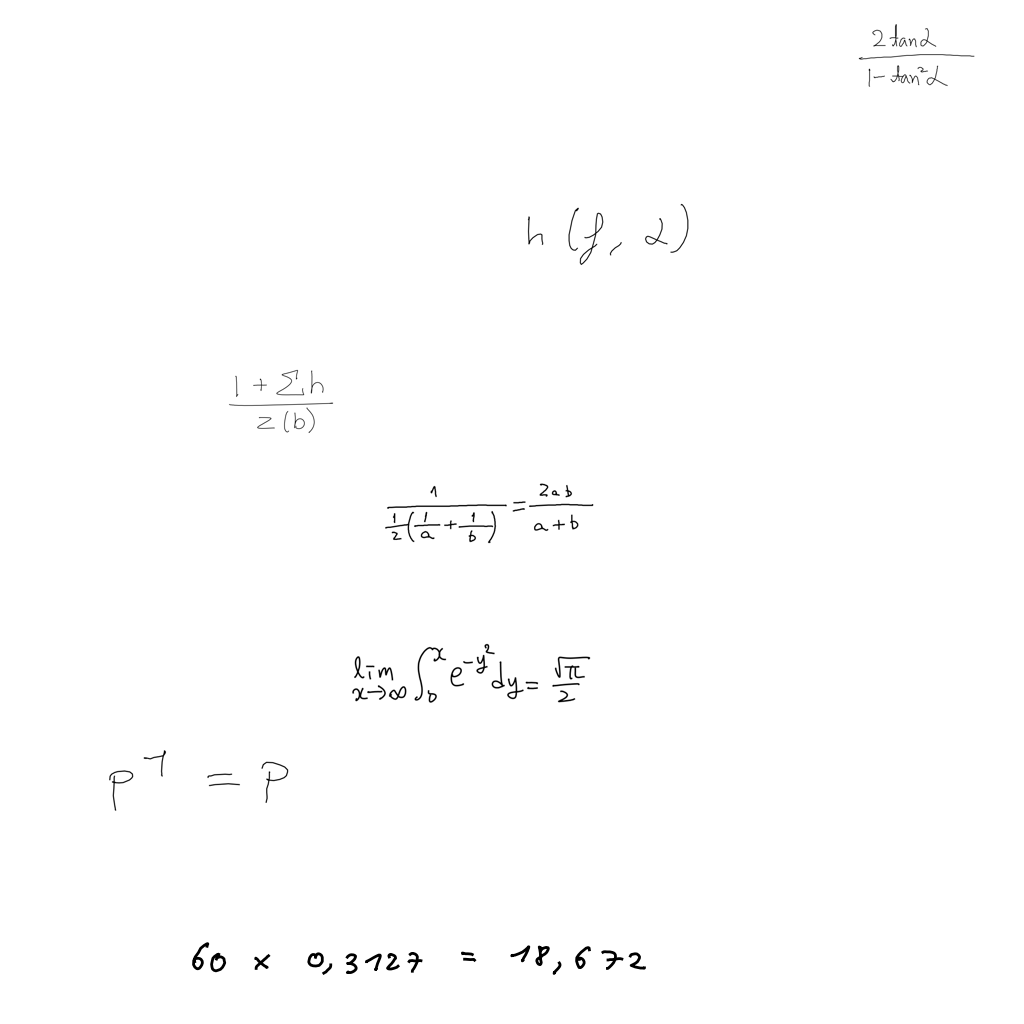 \frac{2\tan\alpha}{1-\tan^2\alpha}
h(f,\alpha)
\frac{1+\sum h}{z(b)}
\frac{1}{\frac{1}{2}\left(\frac{1}{a}+\frac{1}{b}\right)}=\frac{2ab}{a+b}
\lim_{x\to\infty}\int_0^x e^{-y^2}dy=\frac{\sqrt{\pi}}{2}
P^{-1}=P
60 × 0,3127 = 18,672